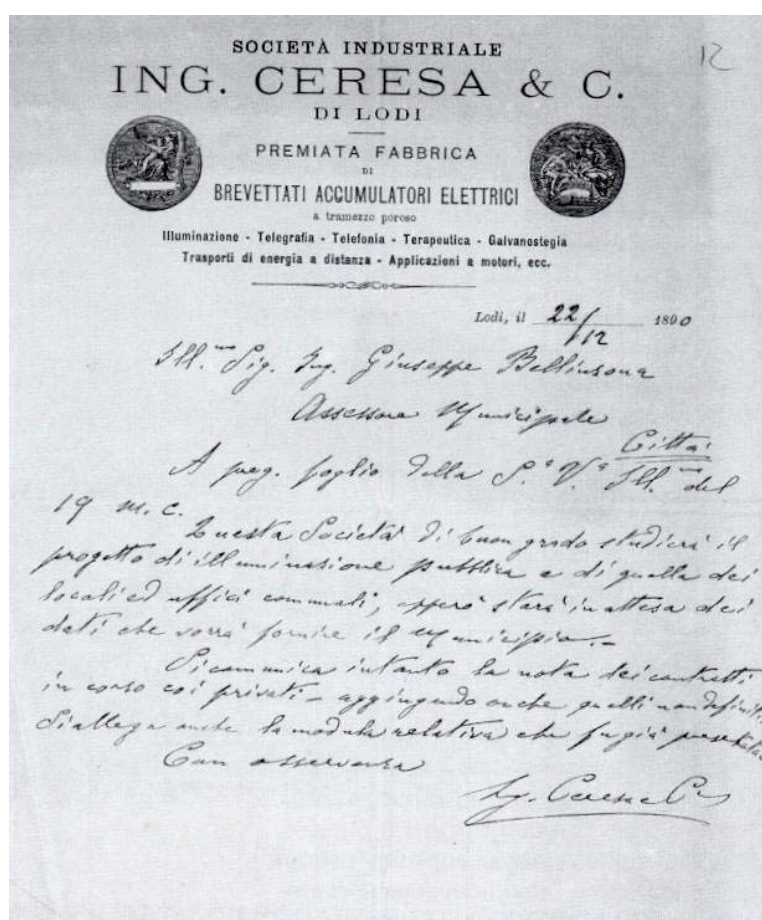 12
SOCIETÀ INDUSTRIALE
ING. CERESA & C.
DI LODI
PREMIATA FABBRICA
DI
BREVETTATI ACCUMULATORI ELETTRICI
a tramezzo poroso
Illuminazione - Telegrafia - Telefonia - Terapeutica - Galvanostegia
Trasporti di energia a distanza - Applicazioni a motori, ecc.
Lodi, il 22/12 1890
Ill.mo Sig. Ing. Giuseppe Bellinzona
Assessore Municipale
Città
A preg. foglio della S.a V.a Ill.ma del
19 m. c.
Questa Società di buon grado studierà il
progetto di illuminazione pubblica e di quella dei
locali ed uffici comunali, epperò starà in attesa dei
dati che vorrà fornire il Municipio.-
Si comunica intanto la nota dei contratti
in corso coi privati - aggiungendo anche quelli non definiti.
Si allega anche la modula relativa che fu già presentata
Con osservanza
Ing. Ceresa C